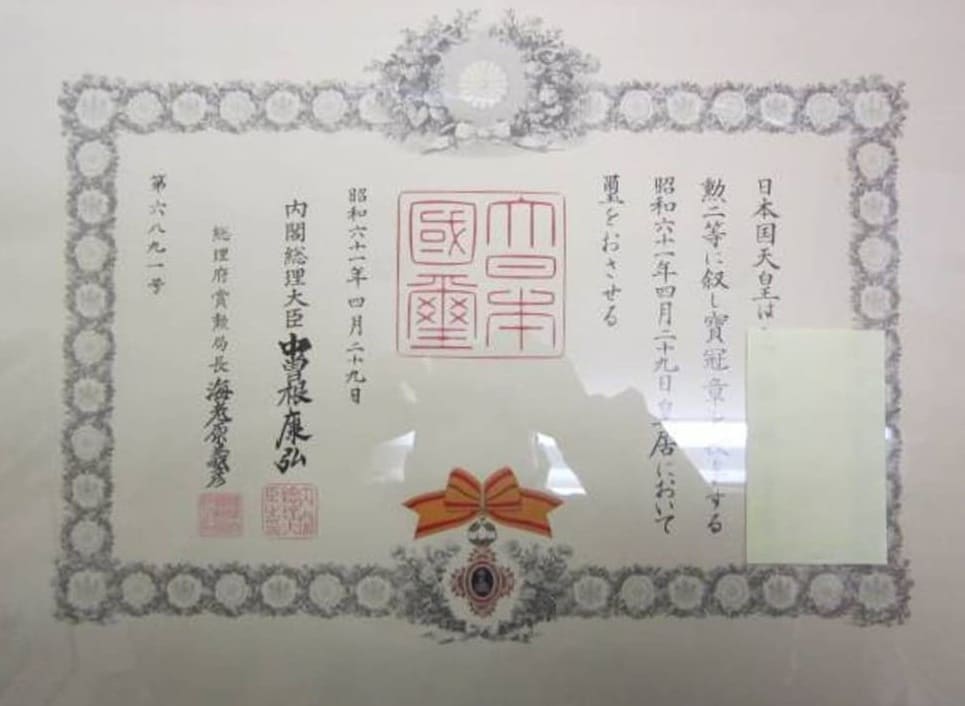 日本国天皇は
勲二等に叙し寶冠章を する
昭和六十一年四月二十九日皇居において
璽をおさせる
大日本
國璽
昭和六十一年四月二十九日
内閣総理大臣 中曽根康弘
総理府賞勲局長 海老原義彦
第六八九一号